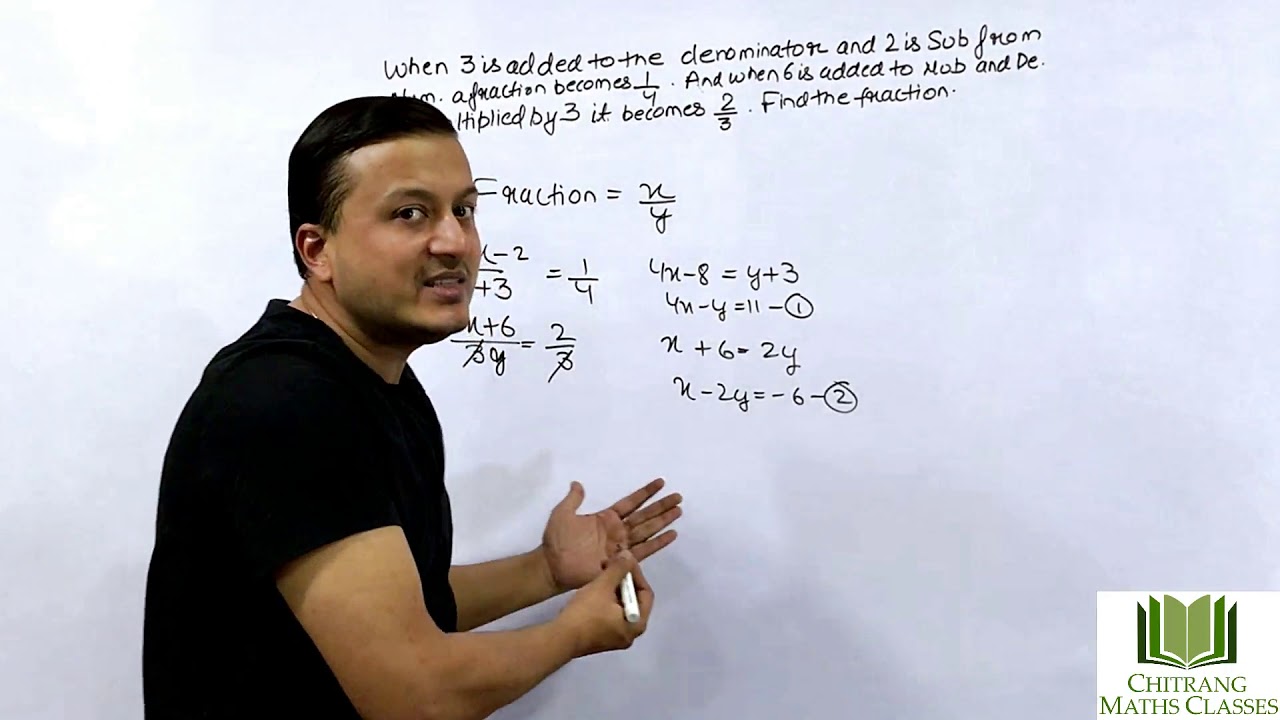 When 3 is added to the denominator and 2 is Sub from
Num. a fraction becomes 1/4. And when 6 is added to Nub and De.
ltiplied by 3 it becomes 2/3. Find the fraction.
Fraction = x/y
x-2/+3 = 1/4
4x-8 = y+3
4x-y=11-①
x+6/3y = 2/3
x+6=2y
x-2y=-6-②
CHITRANG
MATHS CLASSES